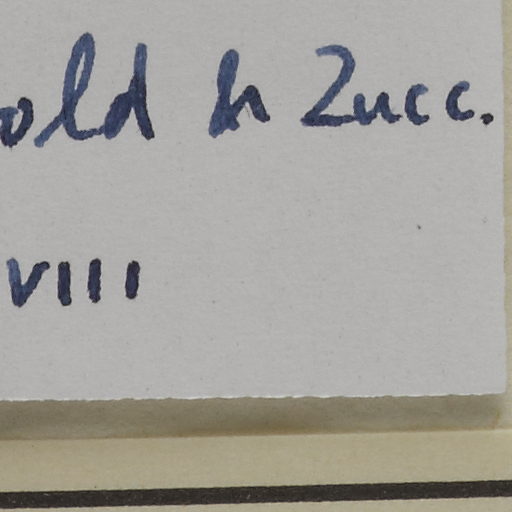 old & Zucc.
VIII